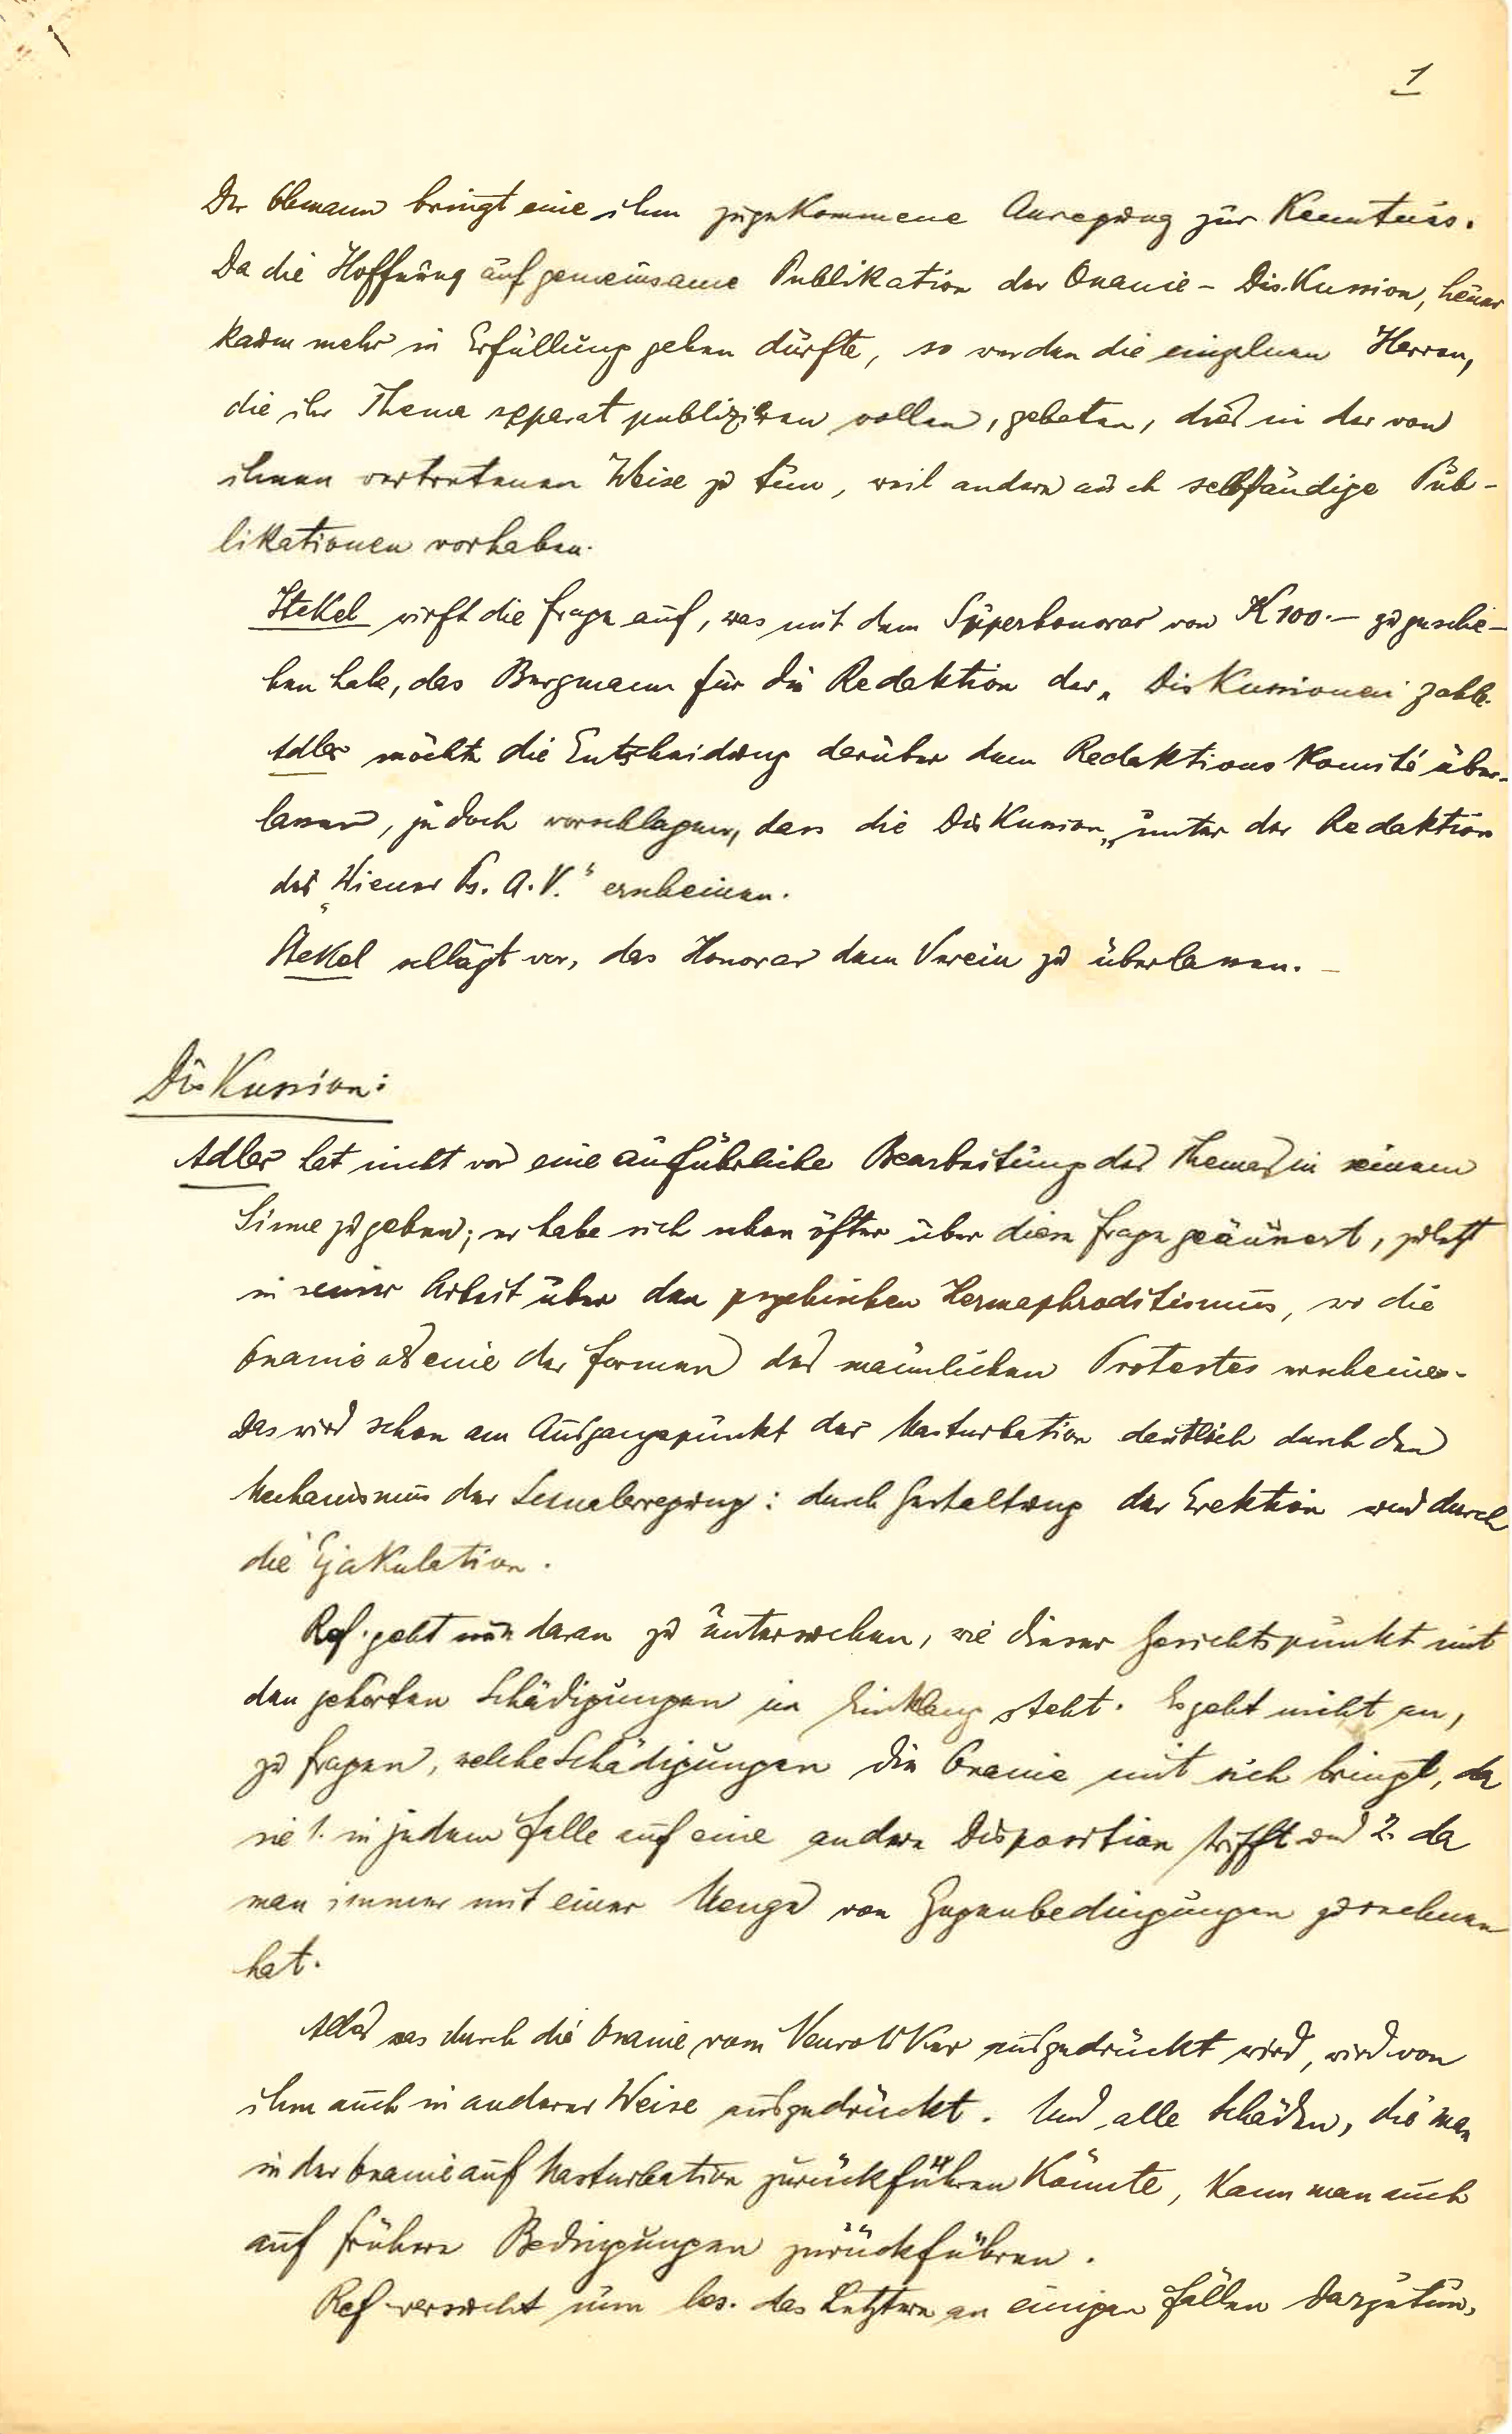 1
Der Obmann bringt eine ihm zugekommene Anregung zur Kenntnis.
Da die Hoffnung auf gemeinsame Publikation der Onanie-Diskussion, heuer
kaum mehr in Erfüllung gehen dürfte, so werden die einzelnen Herren,
die ihr Thema separat publizieren wollen, gebeten, dies in der von
ihnen vertretenen Weise zu tun, weil andere auch selbständige Pub-
likationen vorhaben.
Stekel wirft die Frage auf, was mit dem Superhonorar von K 100.— zu gesche-
hen habe, das Bergmann für die Redaktion der „Diskussionen" zahle.
Adler möchte die Entscheidung darüber dem Redaktionskomité über-
lassen, jedoch vorschlagen, dass die Diskussion „unter der Redaktion
des „Wiener Ps. A. V." erscheinen.
Stekel schlägt vor, das Honorar dem Verein zu überlassen. —
Diskussion:
Adler hat nicht vor eine ausführliche Bearbeitung des Themas in seinem
Sinne zu geben; er habe sich schon öfter über diese Frage geäussert, zuletzt
in seiner Arbeit über den psychischen Hermaphroditismus, wo die
Onanie als eine der Formen des männlichen Protestes erscheine.
Das wird schon am Ausgangspunkt der Masturbation deutlich durch den
Mechanismus der Sexualerregung: durch Gestaltung der Erektion und durch
die Ejakulation.
Ref. geht nun daran zu untersuchen, wie dieser Gesichtspunkt mit
den gehörten Schädigungen in Einklang steht. Es geht nicht an,
zu fragen, welche Schädigungen die Onanie mit sich bringt, da
sie 1. in jedem Falle auf eine andere Disposition trifft und 2. da
man immer mit einer Menge von Gegenbedingungen zu rechnen
hat.
Alles was durch die Onanie vom Neurotiker ausgedrückt wird, wird von
ihm auch in anderer Weise ausgedrückt. Und alle Schäden, die man
in der Onanie auf Masturbation zurückführen könnte, kann man auch
auf frühere Bedingungen zurückführen.
Ref versucht nun bes. das Letztere an einigen Fällen darzutun,